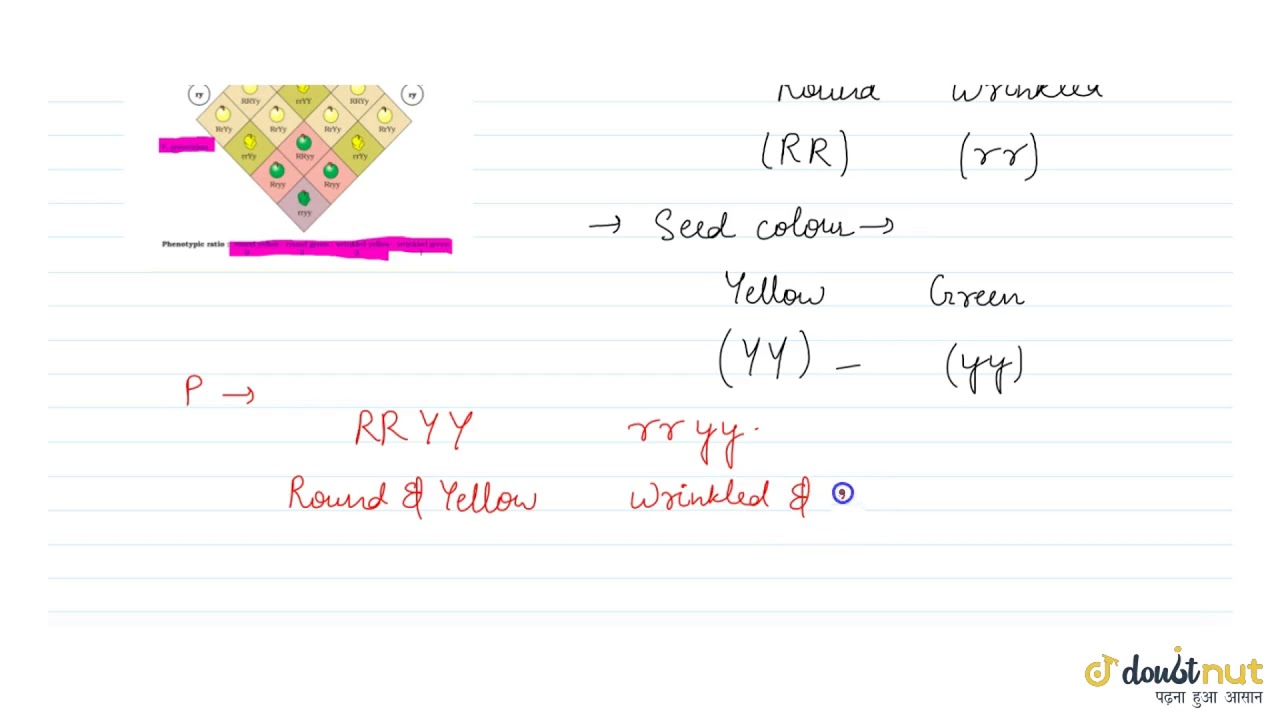 ry ry
RRYy rrYY RRYy
RrYy RrYy RrYy RrYy
rrYy RRyy rrYy
Rryy Rryy
rryy
Phenotypic ratio : round yellow : round green : wrinkled yellow : wrinkled green
Round Wrinkled
(RR) (rr)
→ Seed colour →
Yellow Green
(YY) – (yy)
P →
RRYY rryy.
Round & Yellow Wrinkled &
doubtnut
पढ़ना हुआ आसान